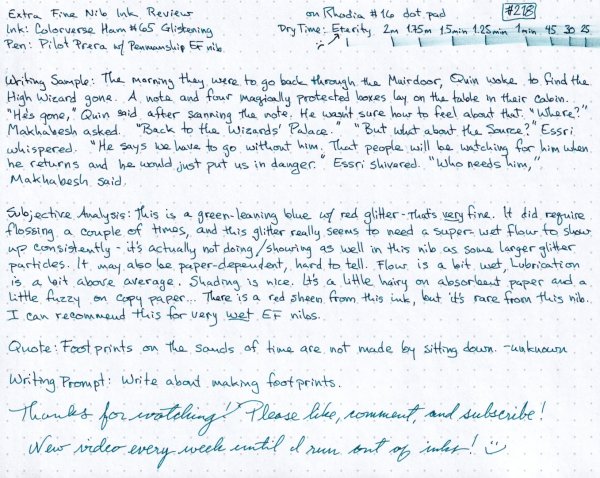 Extra Fine Nib Ink Review on Rhodia #16 dot pad #218
Ink: Colorverse Ham #65 Glistening Dry Time: Etarity 2m 1.75m 1.5min 1.25min 1min 45 30 25
Pen: Pilot Prera w/ Penmanship EF nib
Writing Sample: The morning they were to go back through the Muirdoor, Quin woke to find the
High Wizard gone. A note and four magically protected boxes lay on the table in their cabin.
"He's gone," Quin said after sanning the note. He wasn't sure how to feel about that. "Where?"
Makhabesh asked. "Back to the Wizards' Palace." "But what about the Source?" Essri
whispered. "He says we have to go without him. That people will be watching for him when
he returns and he would just put us in danger." Essri shivered. "Who needs him,"
Makhabesh said.
Subjective Analysis: This is a green-leaning blue w/ red glitter - that's very fine. It did require
flossing a couple of times, and this glitter really seems to need a super-wet flow to show
up consistently - it's actually not doing/showing as well in this nib as some larger glitter
particles. It may also be paper-dependent, hard to tell. Flow is a bit wet, Lubrication
is a bit above average. Shading is nice. It's a little hairy on absorbent paper and a
little fuzzy on copy paper... There is a red sheen from this ink, but it's rare from this nib.
I can recommend this for very wet EF nibs.
Quote: Footprints on the sands of time are not made by sitting down. -unknown
Writing Prompt: Write about making footprints.
Thanks for watching! Please like, comment, and subscribe!
New video every week until I run out of inks! :)